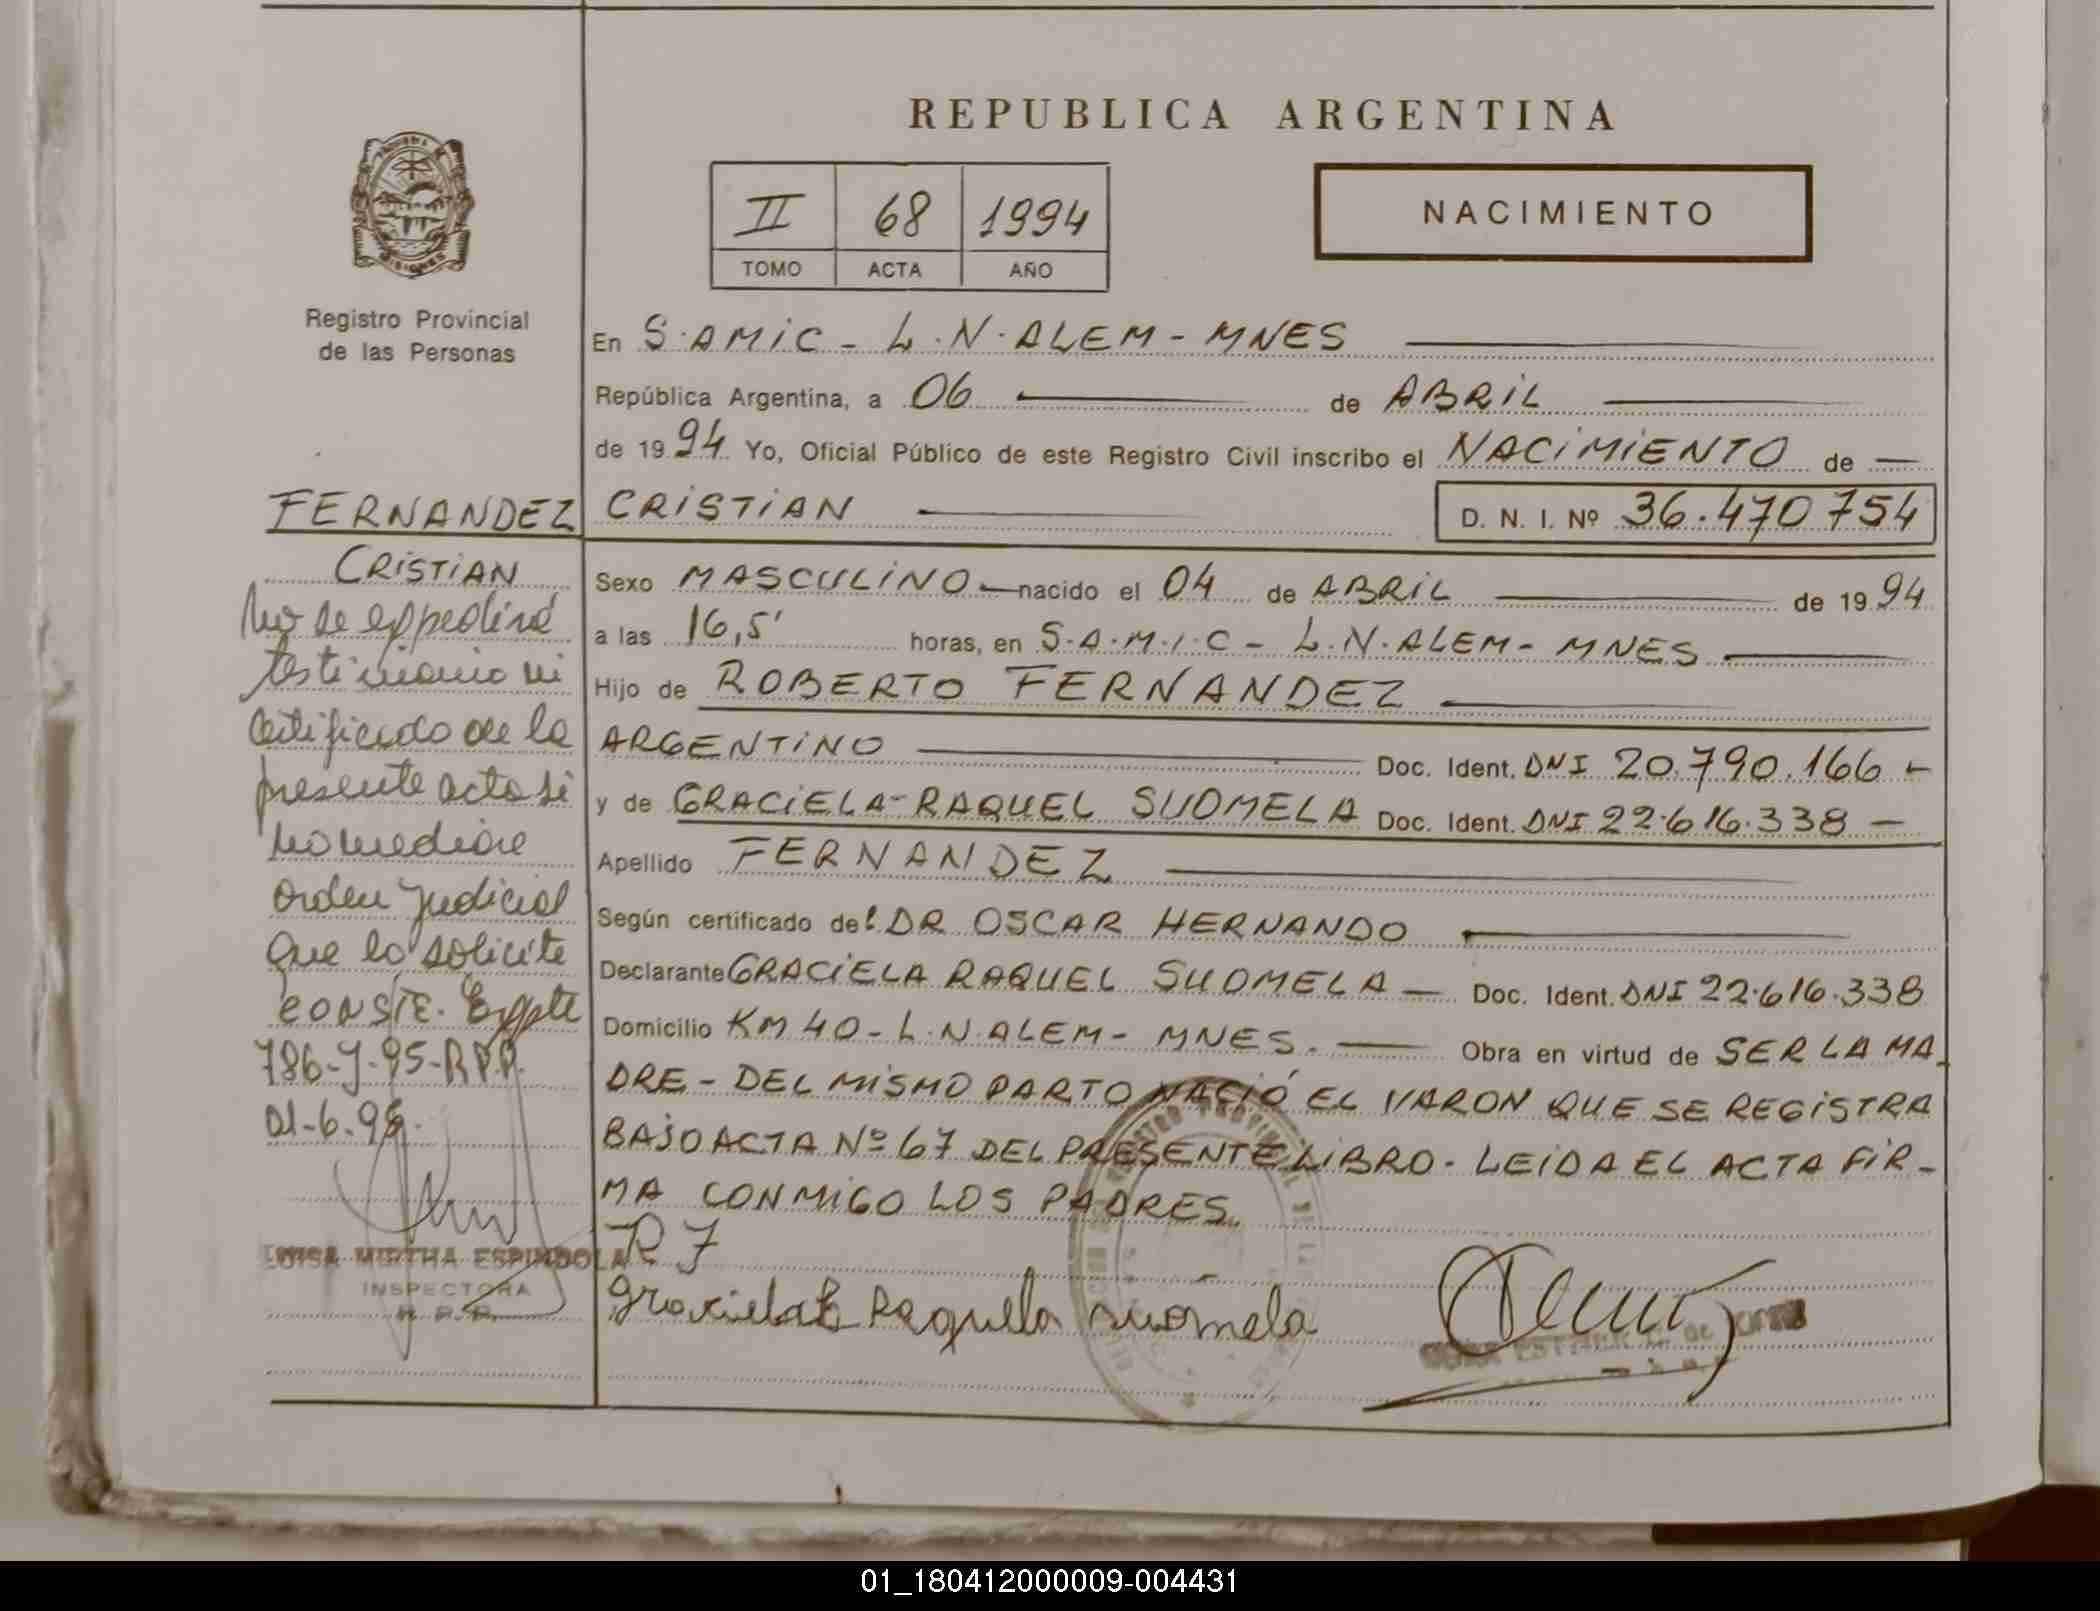 REPUBLICA ARGENTINA
II 68 1994
TOMO ACTA AÑO
NACIMIENTO
MISIONES
Registro Provincial
de las Personas
En S.AMIC - L.N.ALEM - MNES
República Argentina, a 06 de ABRIL
de 1994 Yo, Oficial Público de este Registro Civil inscribo el NACIMIENTO de
FERNANDEZ CRISTIAN D. N. I. Nº 36.470754
CRISTIAN
Sexo MASCULINO nacido el 04 de ABRIL de 1994
a las 16,5' horas, en S.A.M.I.C - L.N.ALEM - MNES
Hijo de ROBERTO FERNANDEZ
ARGENTINO Doc. Ident. DNI 20.790.166 -
y de GRACIELA-RAQUEL SUOMELA Doc. Ident. DNI 22.616.338 -
Apellido FERNANDEZ
Según certificado del DR OSCAR HERNANDO
Declarante GRACIELA RAQUEL SUOMELA - Doc. Ident. DNI 22.616.338
Domicilio KM 40 - L.N.ALEM - MNES. Obra en virtud de SER LA MA-
DRE - DEL MISMO PARTO NACIÓ EL VARON QUE SE REGISTRA
BAJO ACTA Nº 67 DEL PRESENTE LIBRO. LEIDA EL ACTA FIR-
MA CONMIGO LOS PADRES.
R F
Suomela
No se expedirá
testimonio ni
certificado de la
presente acta si
no mediare
orden judicial
que lo solicite
CONSTE. Expte
786-J-95-R.P.P.
01-6-95.
LUISA MIRTHA ESPINDOLA
INSPECTORA
R. P. P.
01_180412000009-004431